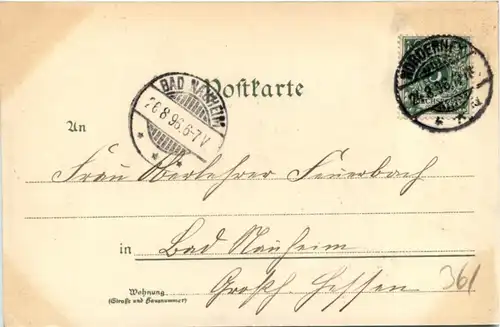 Postkarte
NORDERNEY
BAD NAUHEIM
26 8 96. 6-7 V
An
Frau Oberlehrer Feuerbach
in Bad Nauheim
Großh. Hessen
361
Wohnung
(Straße und Hausnummer)